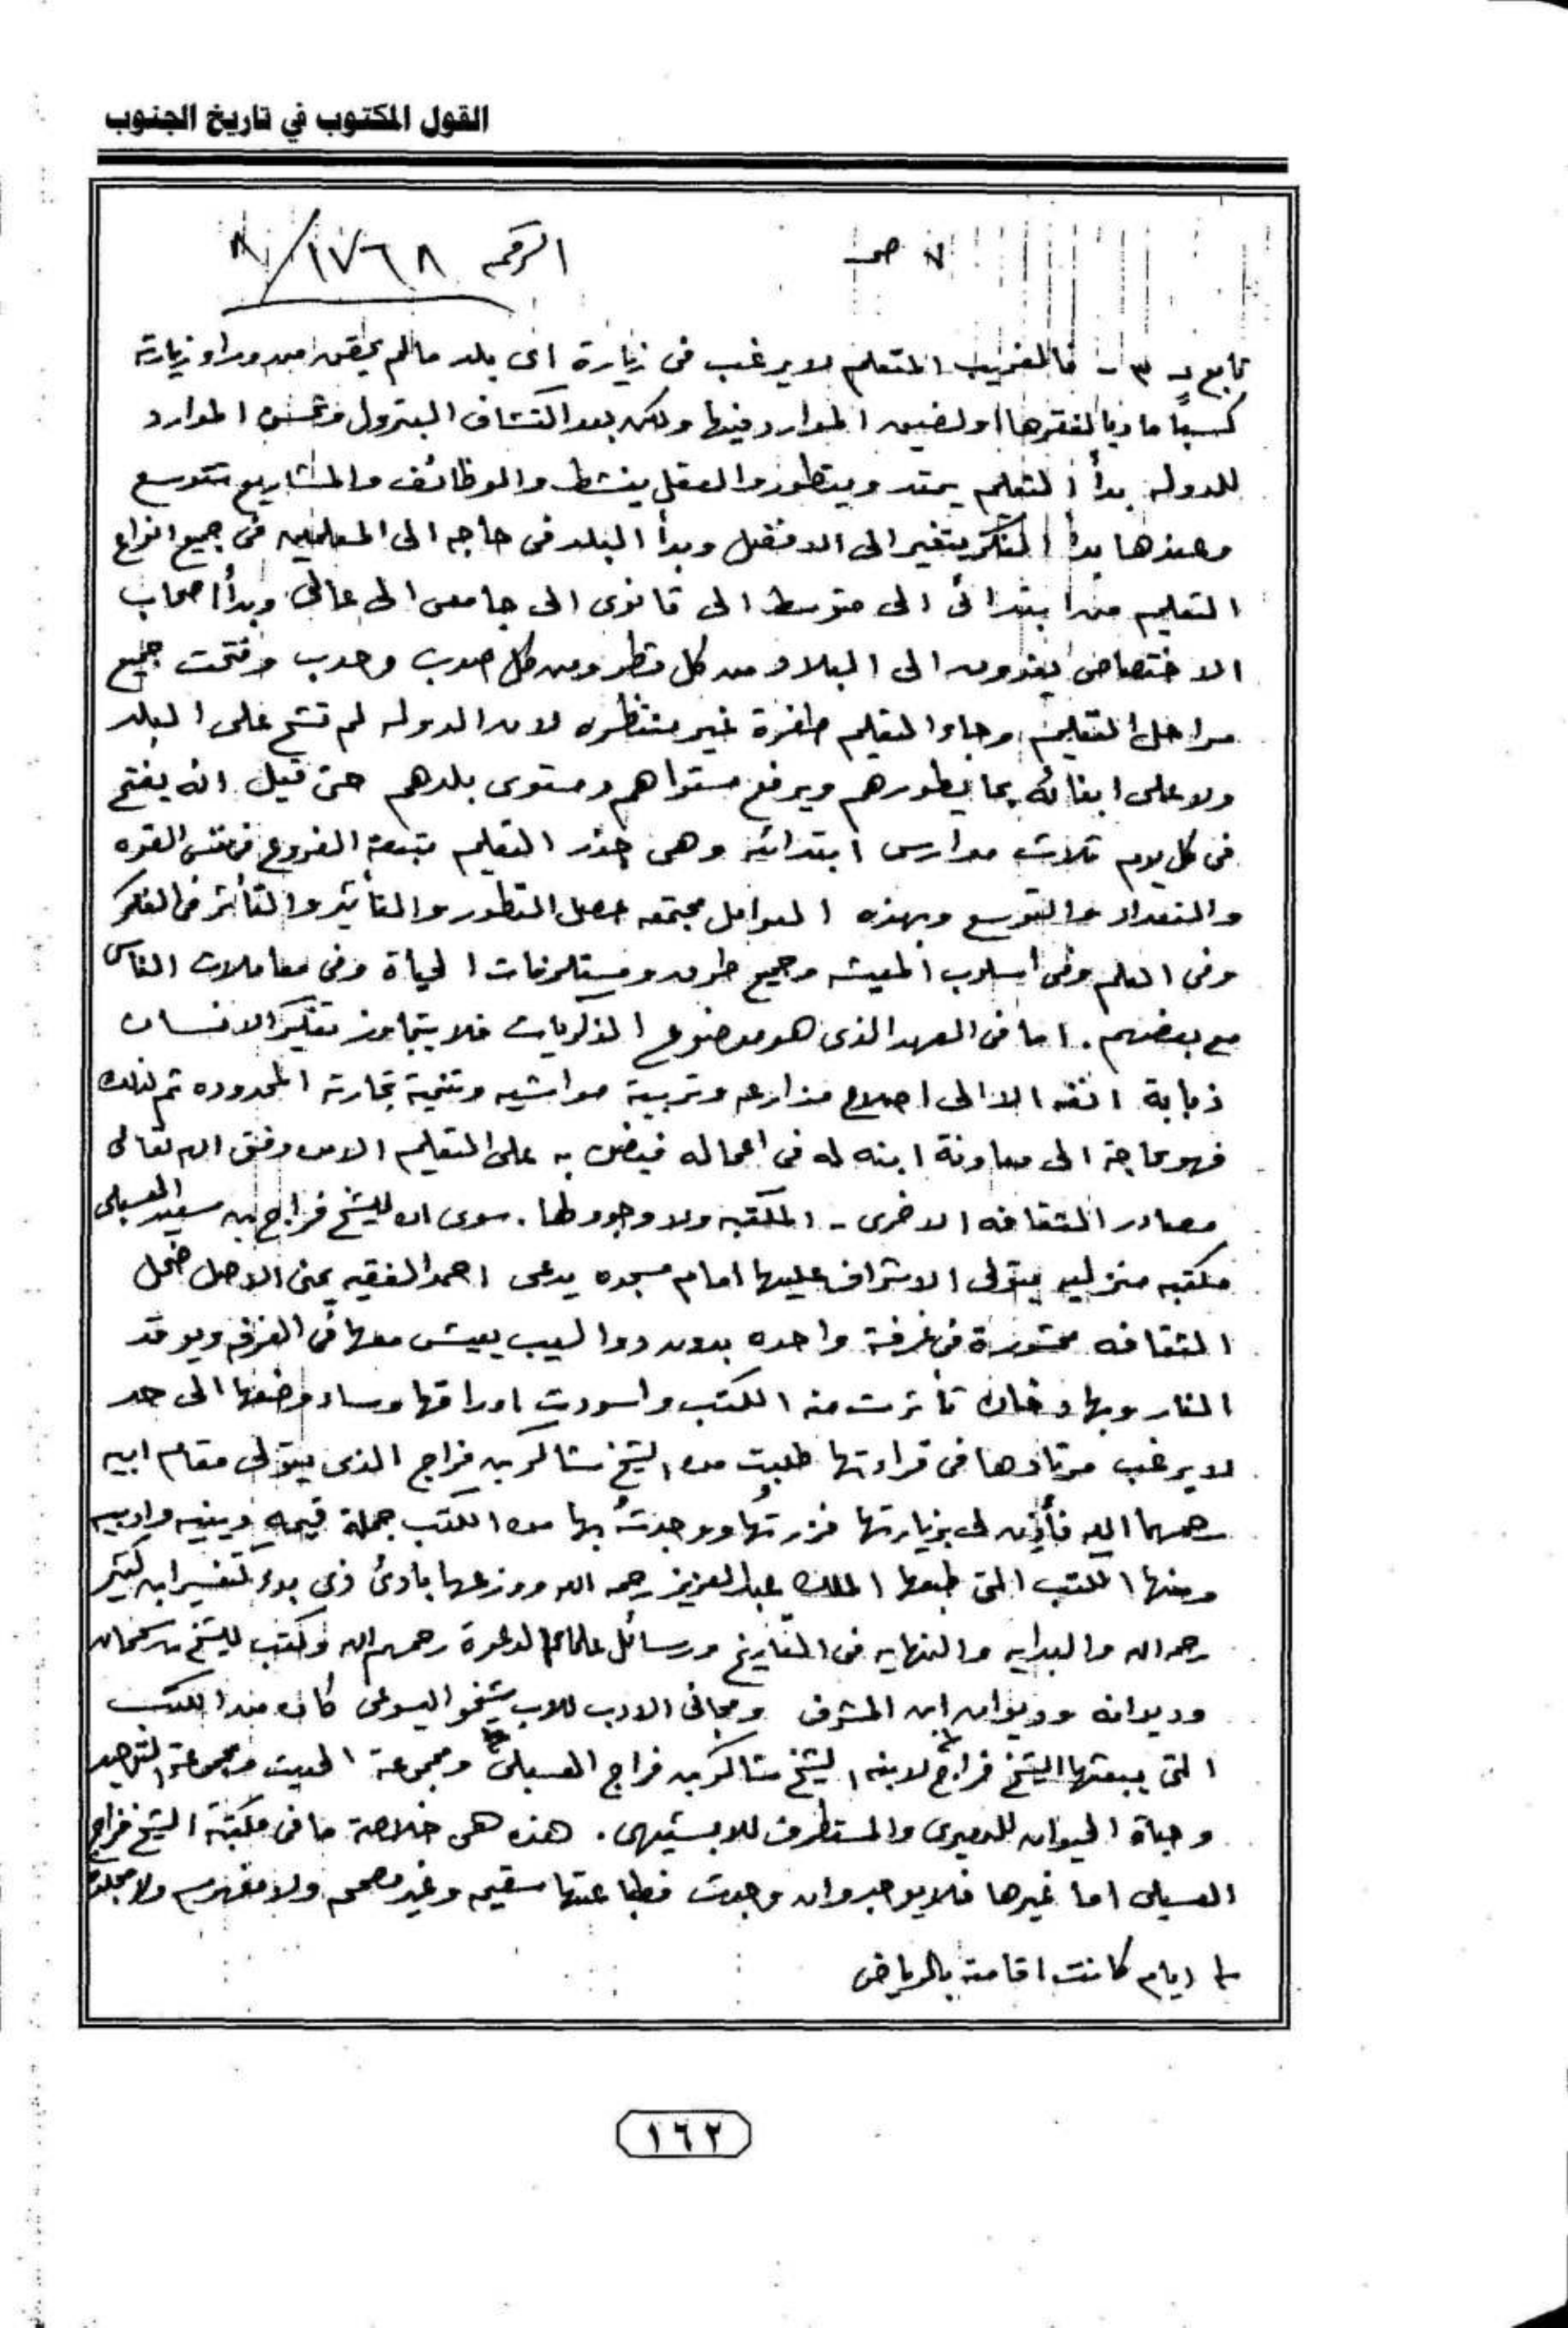 القول المكتوب في تاريخ الجنوب
٧ صـ
الرقم ١٧٦٨/٨
تابع ـ ٣ ـ فالغريب المتعلم لا يرغب فى زيارة اى بلد مالم يحقق من وراء زيارته
كسباً مادياً لفقرها اولضيق الموارد فيها ولكن بعد اكتشاف البترول وتحسن الموارد
للدوله بدأ التعليم يمتد ويتطور والعقل ينشط والوظائف والمشاريع تتوسع
وعندها بدأ الفكر يتغير الى الافضل وبدأ البلد فى حاجه الى المعلمين فى جميع انواع
التعليم من ابتدائى الى متوسط الى ثانوى الى جامعى الى عالى وبدأ اصحاب
الاختصاص يفدون الى البلاد من كل قطر ومن كل صوب وحدب وفتحت جميع
مراحل التعليم وجاء التعليم طفرة غير منتظره لان الدوله لم تشح على البلد
ولا على ابنائه بما يطورهم ويرفع مستواهم ومستوى بلدهم حتى قيل انه يفتح
فى كل يوم ثلاث مدارس ابتدائيه وهى جذر التعليم تتبعه الفروع فى نفس القوه
والتعداد والتوسع وبهذه العوامل مجتمعه حصل التطور والتأثير والتأثر فى الفكر
وفى العلم وفى اسلوب المعيشه وجميع طرق ومستلزمات الحياة وفى معاملات الناس
مع بعضهم . اما فى العهد الذى هو موضوع الذكريات فلا يتجاوز تفكير الانسان
ذبابة انفه الا الى اصلاح مزارعه وتربية مواشيه وتنمية تجارته المحدوده ثم لذلك
فهو بحاجة الى معاونة ابنه له فى اعماله فيضن به على التعليم الا من وفق الله تعالى
مصادر الثقافه الاخرى ـ المكتبه ولا وجود لها . سوى ان للشيخ فراج بن سعيد العسبلى
مكتبه منزليه يتولى الاشراف عليها امام مسجده يدعى احمد الفقيه يمنى الاصل ضحل
الثقافه محشورة فى غرفة واحده بدون دواليب يعيش معها فى الغرفه ويوقد
النار وبها دخان تأثرت منه الكتب واسودت اوراقها وساء وضعها الى حد
لا يرغب مرتادها فى قراءتها طلبت من الشيخ شاكر بن فراج الذى يتولى مقام ابيه
رحمهما الله فأذن لى بزيارتها فزرتها ووجدتُ بها من الكتب جملة قيمه دينيه وادبيه
ومنها الكتب التى طبعها الملك عبدالعزيز رحمه الله ووزعها بادئ ذى بدء كتفسير ابن كثير
رحمه الله والبدايه والنهايه فى التاريخ ورسائل علماء الدعوة رحمهم الله وكتب للشيخ بن سحمان
وديوانه وديوان ابن المشرف ومجانى الادب للاب شيخو اليسوعى كان من الكتب
التى يبعثها الشيخ فراج لابنه الشيخ شاكر بن فراج العسبلى ومجموعة الحديث ومجموعة التوحيد
وحياة الحيوان للدميرى والمستطرف للابشيهى . هذه هى خلاصة ما فى مكتبة الشيخ فراج
العسبلى اما غيرها فلا يوجد وان وجدت فطباعتها سقيمه وغير مصححه ولا مفهرسه ولا مجلده
١/ ايام كانت اقامته بالرياض
١٦٢